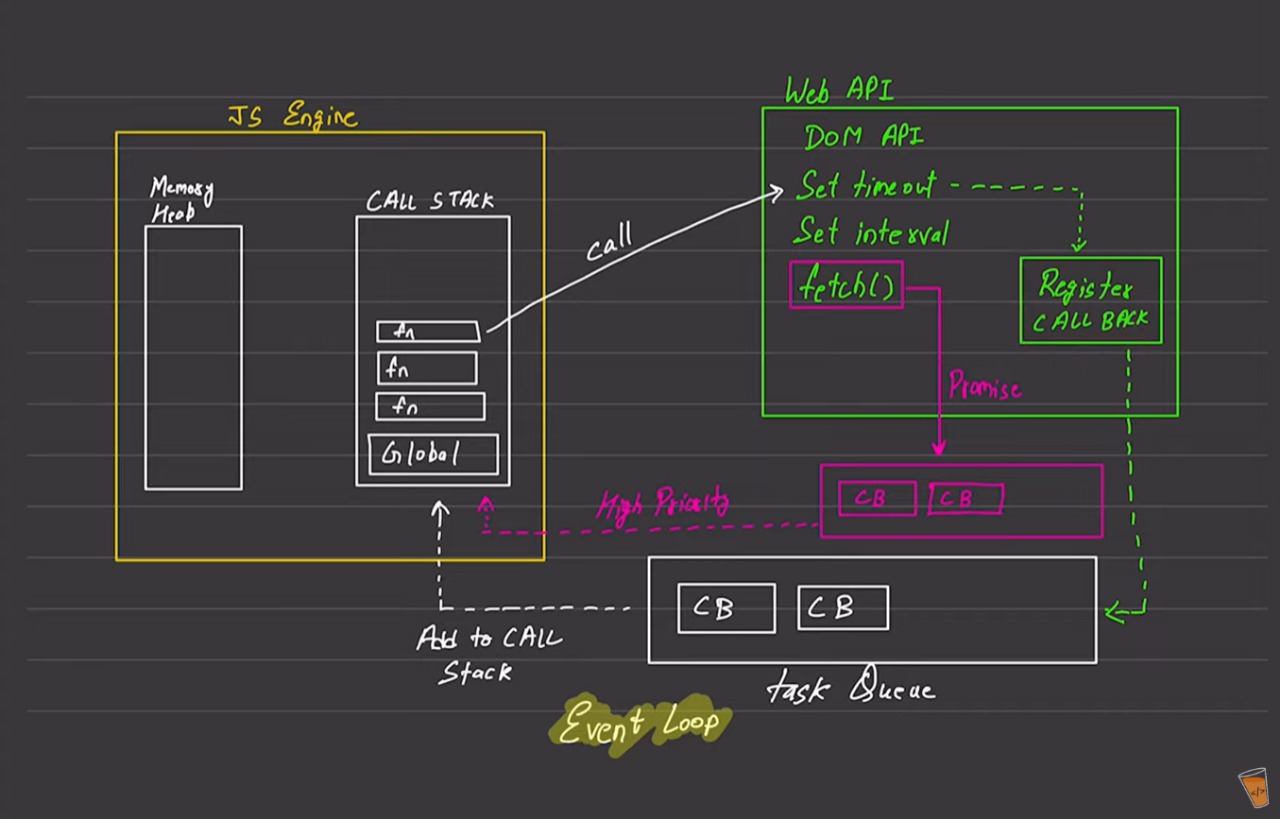 JS Engine
Memory
Heab
CALL STACK
fn
fn
fn
Global
call
Web API
DOM API
Set timeout
Set interval
fetch()
Register
CALL BACK
Promise
CB CB
High Priority
CB CB
Add to CALL
Stack
task Queue
Event Loop
</>